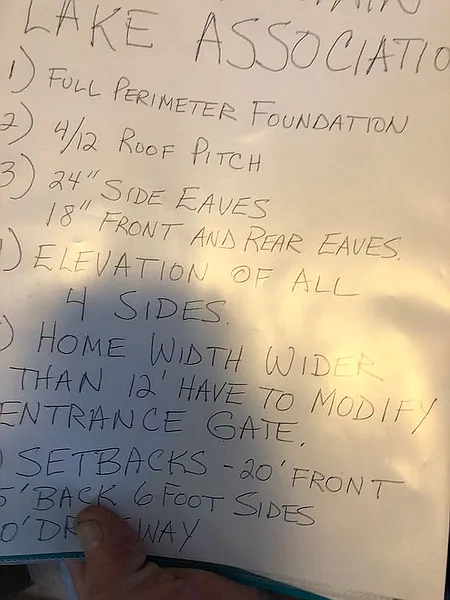 LAKE ASSOCIATIO
1) FULL PERIMETER FOUNDATION
2) 4/12 ROOF PITCH
3) 24" SIDE EAVES
18" FRONT AND REAR EAVES.
) ELEVATION OF ALL
4 SIDES.
) HOME WIDTH WIDER
THAN 12' HAVE TO MODIFY
ENTRANCE GATE.
) SETBACKS - 20' FRONT
5' BACK 6 FOOT SIDES
0' DR WAY